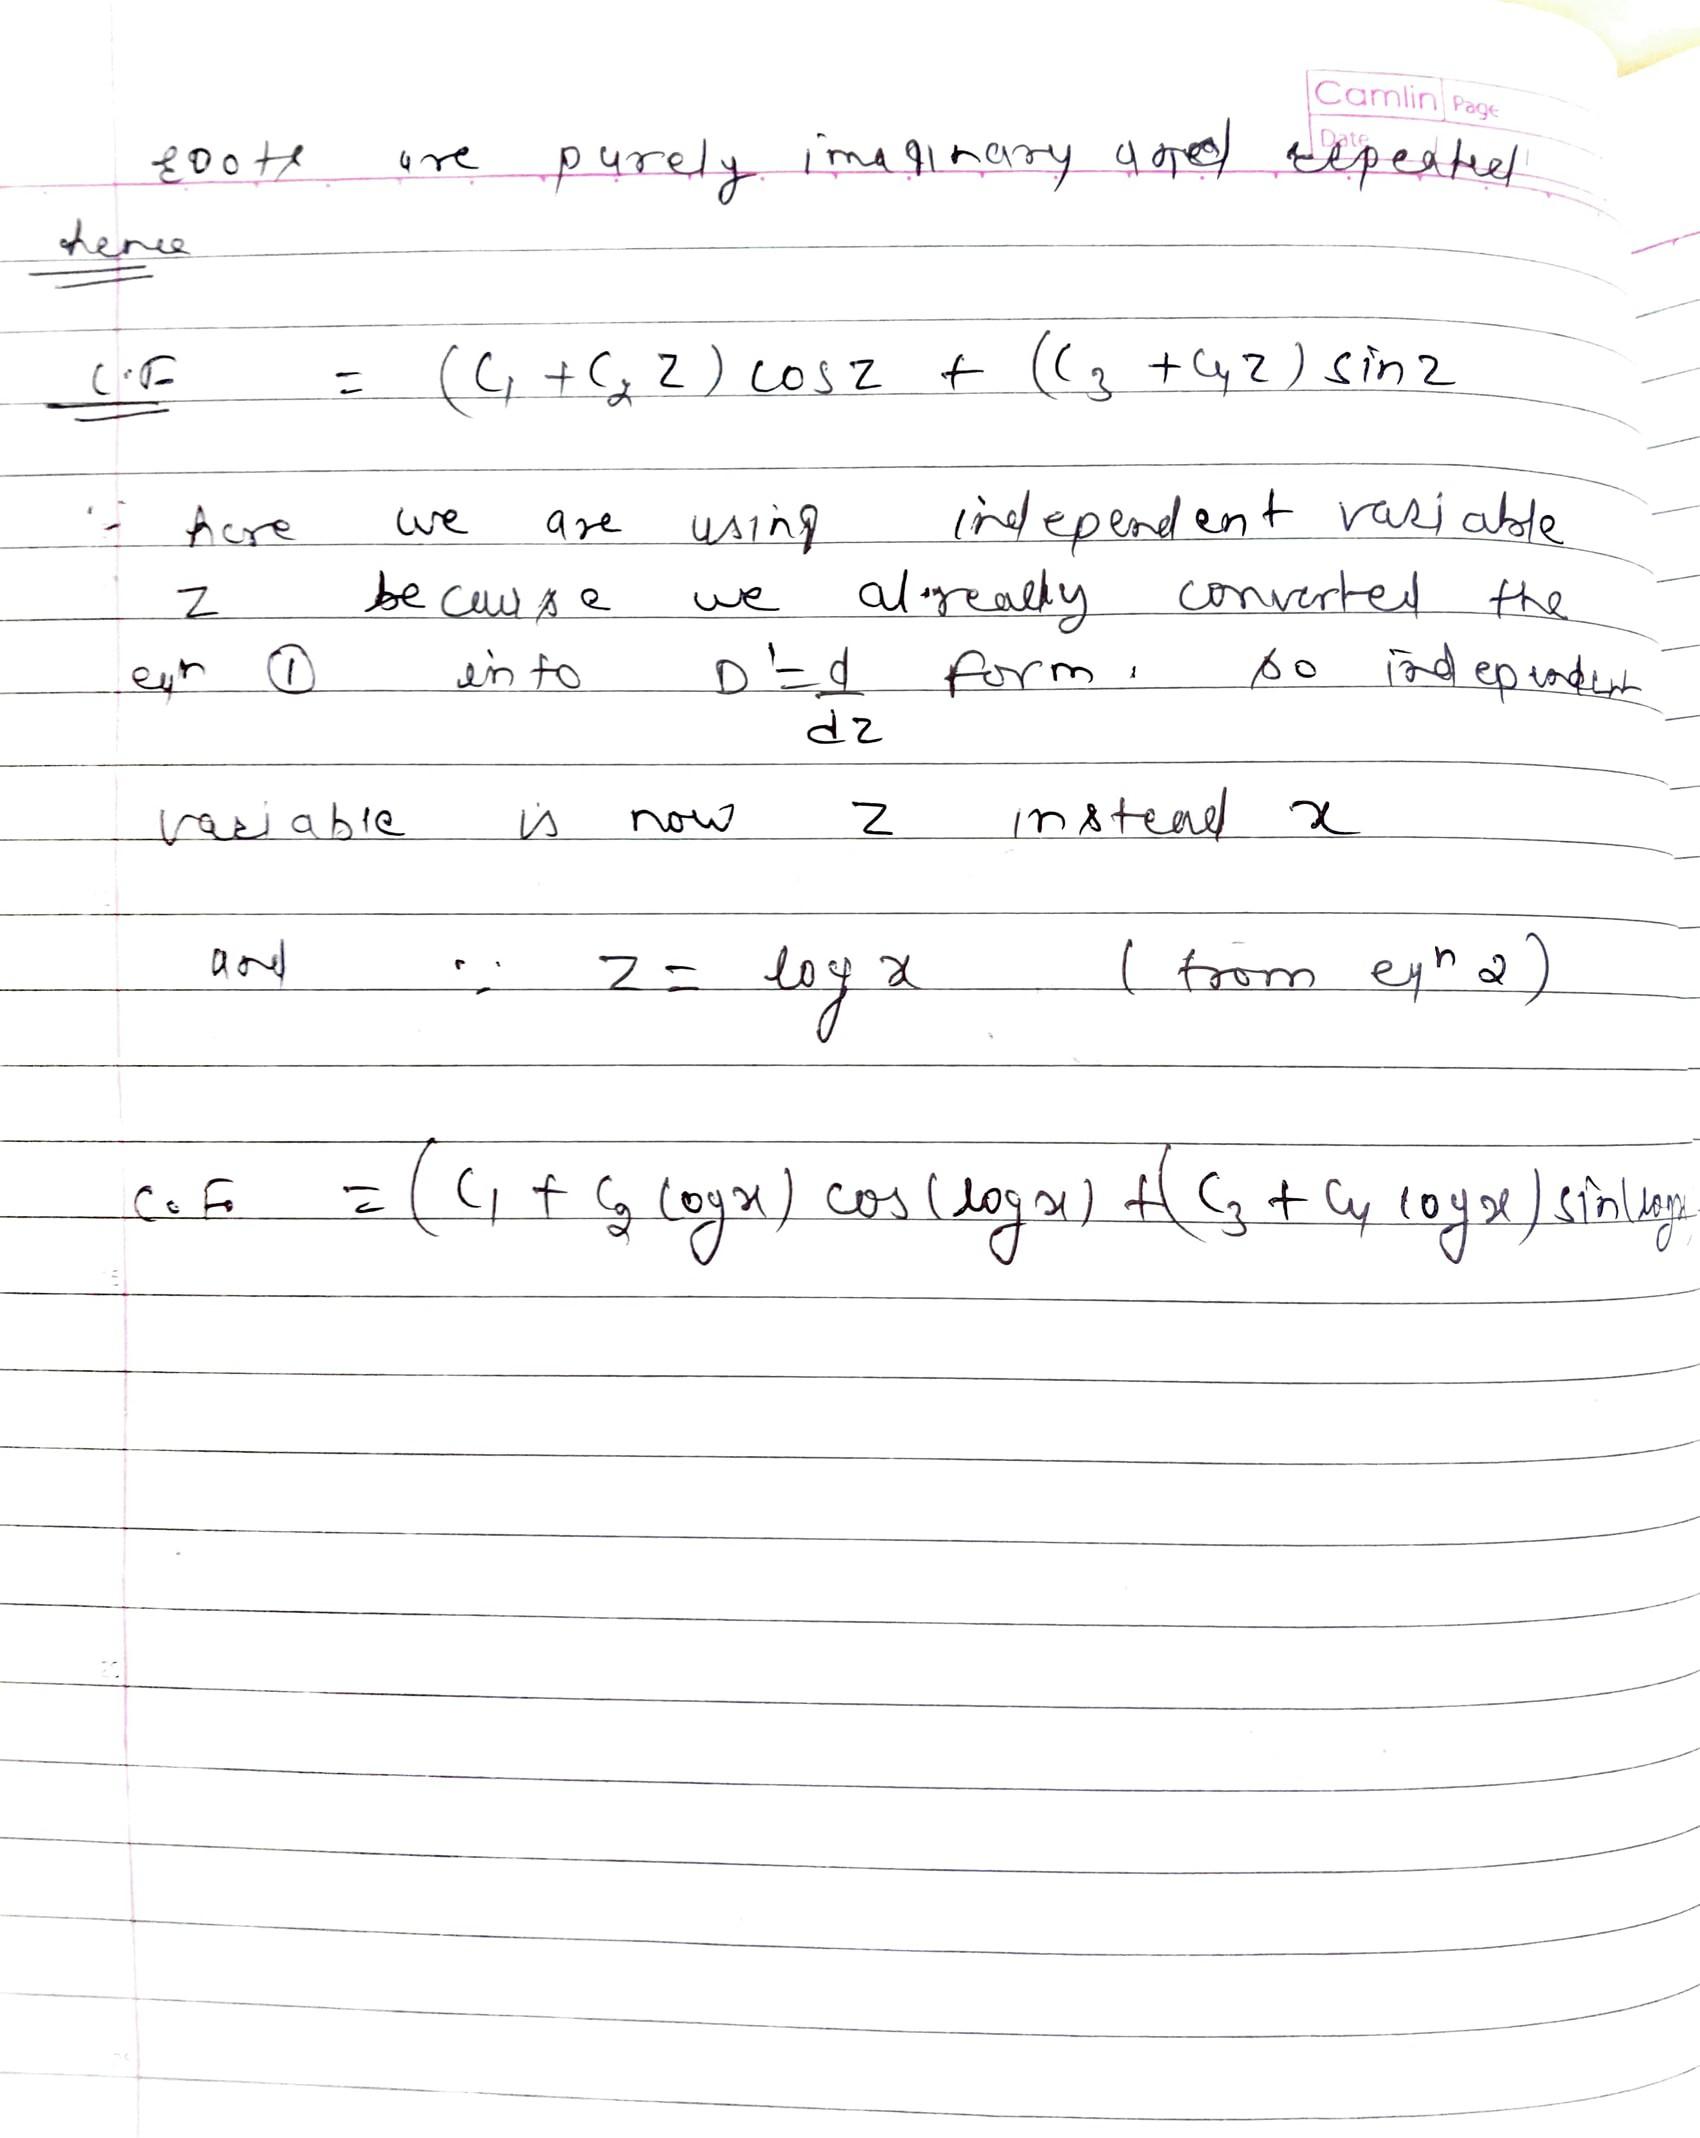 Camlin Page
Date
roots are purely imaginary and repeated
hence
C.F = (C₁ + C₂ z) cos z + (C₃ + C₄ z) sin z
∵ here we are using independent variable
z because we already converted the
eqn ① into D' = d/dz form. so independent
variable is now z instead x
and ∵ z = log x (from eqn 2)
C.F. = (C₁ + C₂ log x) cos(log x) + (C₃ + C₄ log x) sin(log x